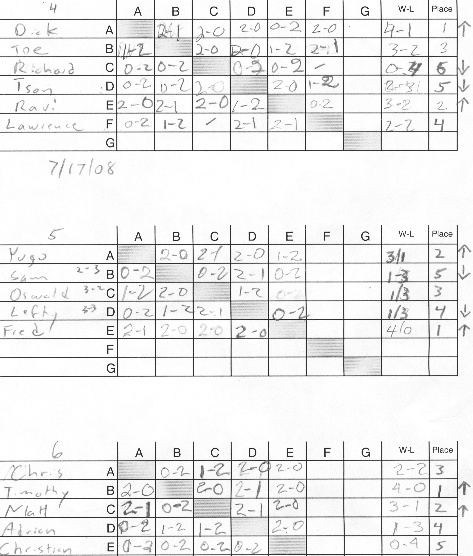 4 A B C D E F G W-L Place
Dick A 2-1 2-0 2-0 0-2 2-0 4-1 1 ↑
Joe B 1-2 2-0 2-0 1-2 2-1 3-2 3
Richard C 0-2 0-2 0-2 0-2 / 0-4 6 ↓
Tson D 0-2 0-2 2-0 2-0 1-2 5 ↓
Ravi E 2-0 2-1 2-0 1-2 0-2 3-2 2 ↑
Lawrence F 0-2 1-2 / 2-1 2-1 2-2 4
G
7/17/08
5 A B C D E F G W-L Place
Yugo A 2-0 2-1 2-0 1-2 3/1 2 ↑
Sam 2-3 B 0-2 0-2 2-1 0-2 1-3 5 ↓
Oswald 3-2 C 1-2 2-0 1-2 1/3 3
Lefty 3-3 D 0-2 1-2 2-1 0-2 1/3 4 ↓
Fred E 2-1 2-0 2-0 2-0 4/0 1 ↑
F
G
6 A B C D E F G W-L Place
Chris A 0-2 1-2 2-0 2-0 2-2 3
Timothy B 2-0 2-0 2-1 2-0 4-0 1 ↑
Matt C 2-1 0-2 2-1 2-0 3-1 2 ↑
Adrian D 0-2 1-2 1-2 2-0 1-3 4
Christian E 0-2 0-2 0-2 0-2 0-4 5